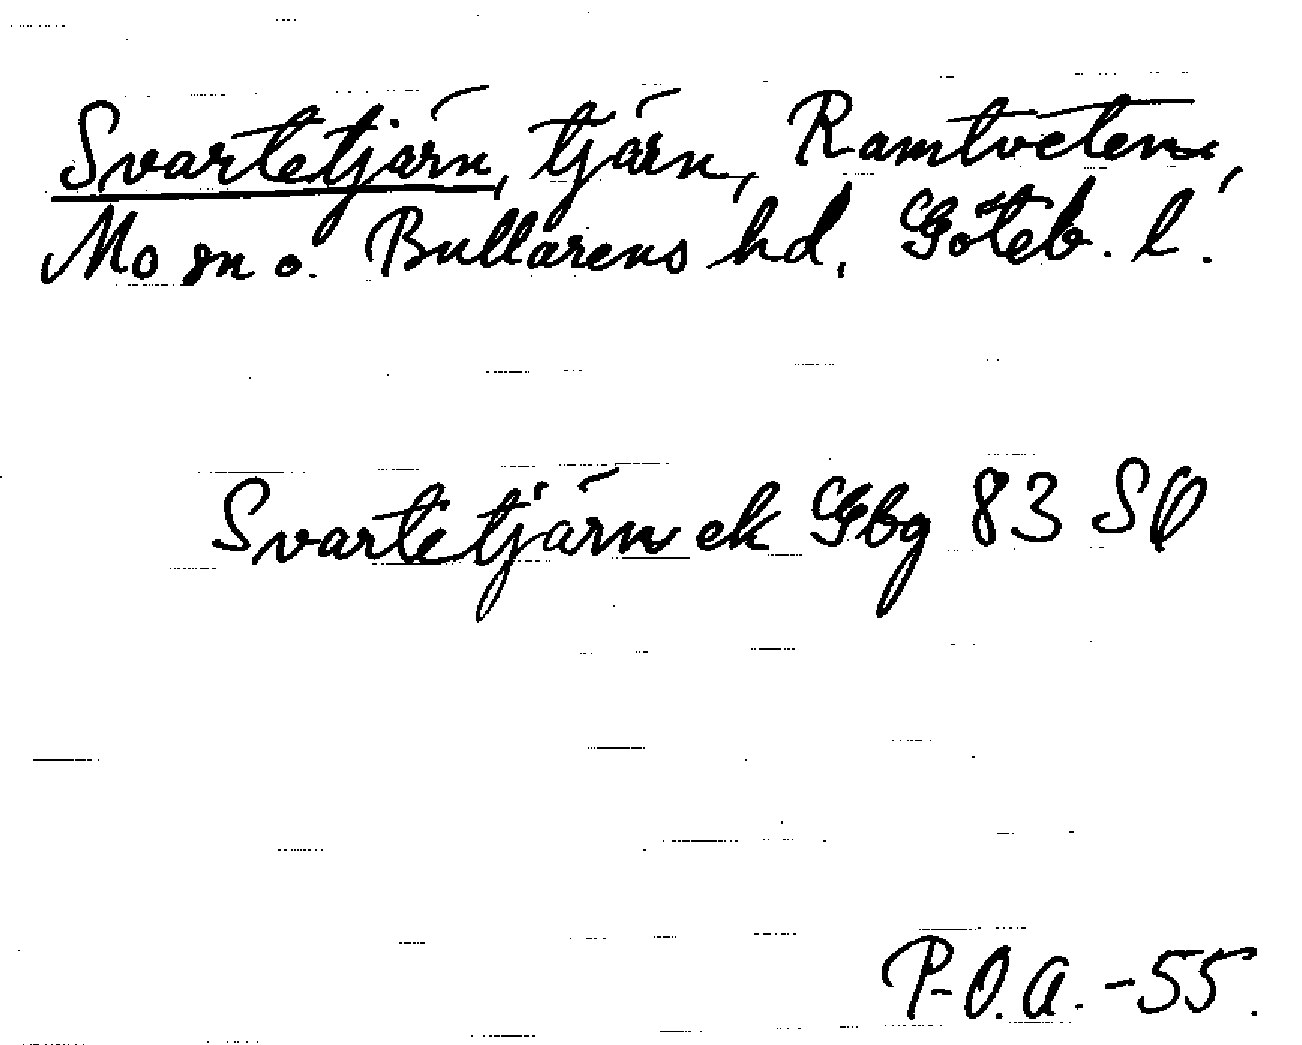 Svartetjärn, tjärn, Ramtveten,
Mo sn o. Bullarens hd, Göteb. l.
Svartetjärn ek Gbg 83 SO
P-O.A. -55.